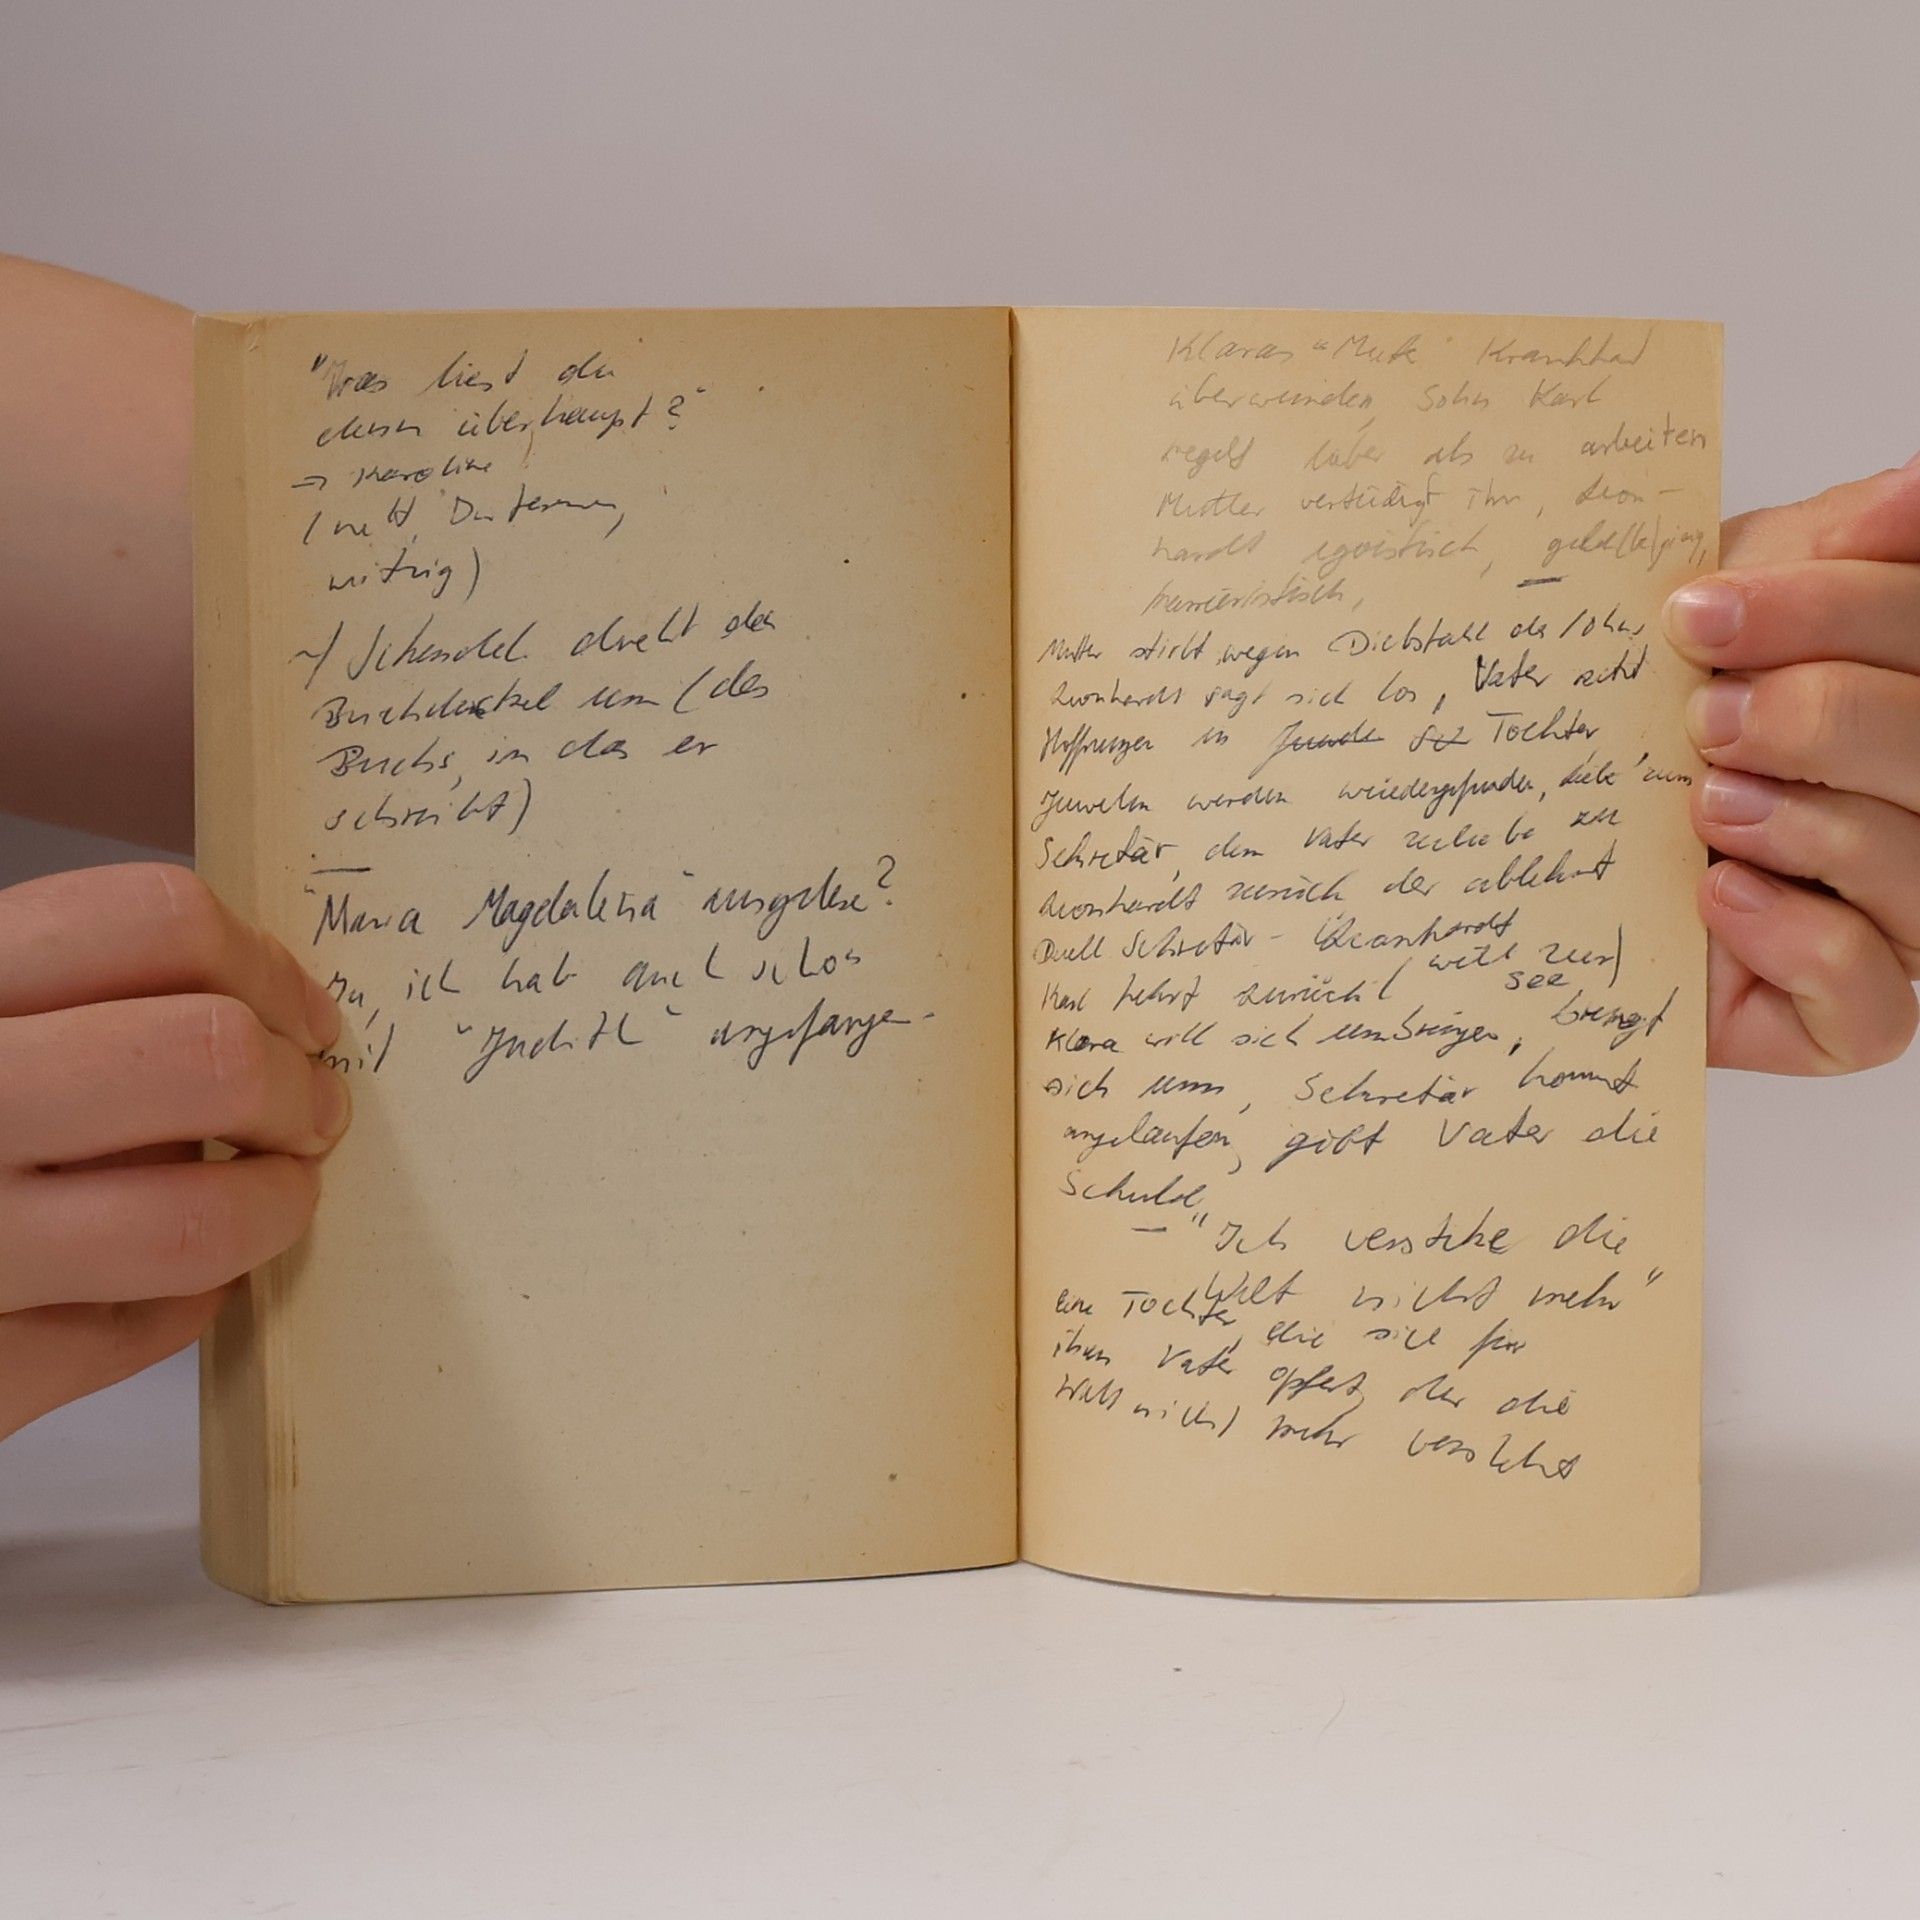 "Was liest du
denn überhaupt?"
→ Karoline
witzig)
dreht den
Buchdeckel um (des
Buchs, in das er
schreibt)
"Maria Magdalena" ausgelesen?
Ja, ich hab auch schon
mit "Judith" angefangen.
Klaras
überwunden, Sohn Karl
lieber als zu arbeiten
Mutter verteidigt ihn, Leon-
hardt egoistisch, geld(be)gierig,
Mutter stirbt wegen Diebstahl des Sohns
Leonhardt sagt sich los, Vater setzt
Hoffnungen in Tochter,
Juwelen werden wiedergefunden, Liebe zum
Sekretär, dem Vater zuliebe zu
Leonhardt zurück der ablehnt
Duell Sekretär - Leonhardt
Karl kehrt zurück (will zur See)
Klara will sich umbringen, bringt
sich um, Sekretär kommt
angelaufen, gibt Vater die
Schuld
— "Ich verstehe die
Welt nicht mehr"
Eine Tochter, die sich für
ihren Vater opfert, der die
Welt nicht mehr versteht